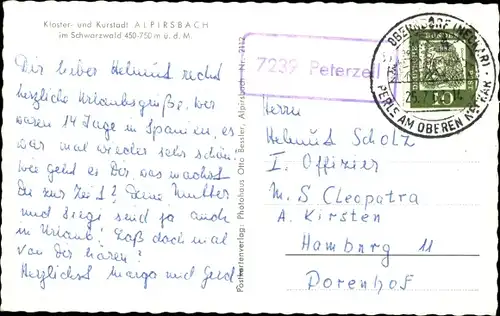 Kloster- und Kurstadt ALPIRSBACH
im Schwarzwald 450-750 m ü. d. M.
Dir lieber Helmut recht
herzliche Urlaubsgrüße, wir
waren 14 Tage in Spanien, es
war mal wieder sehr schön.
Wie geht es Dir, was machst
Du zur Zeit? Deine Mutter
und sind ja auch
in Urlaub! Laß doch mal
von Dir hören!
Herzlichst Margo und Gerd
Postkartenverlag: Photohaus Otto Bessler, Alpirsbach Nr. 2112
7239 Peterzell
OBERNDORF (NECKAR)
PERLE AM OBEREN NECKAR
10
Herrn
Helmut Scholz
I. Offizier
M.S Cleopatra
A. Kirsten
Hamburg 11
Dorenhof